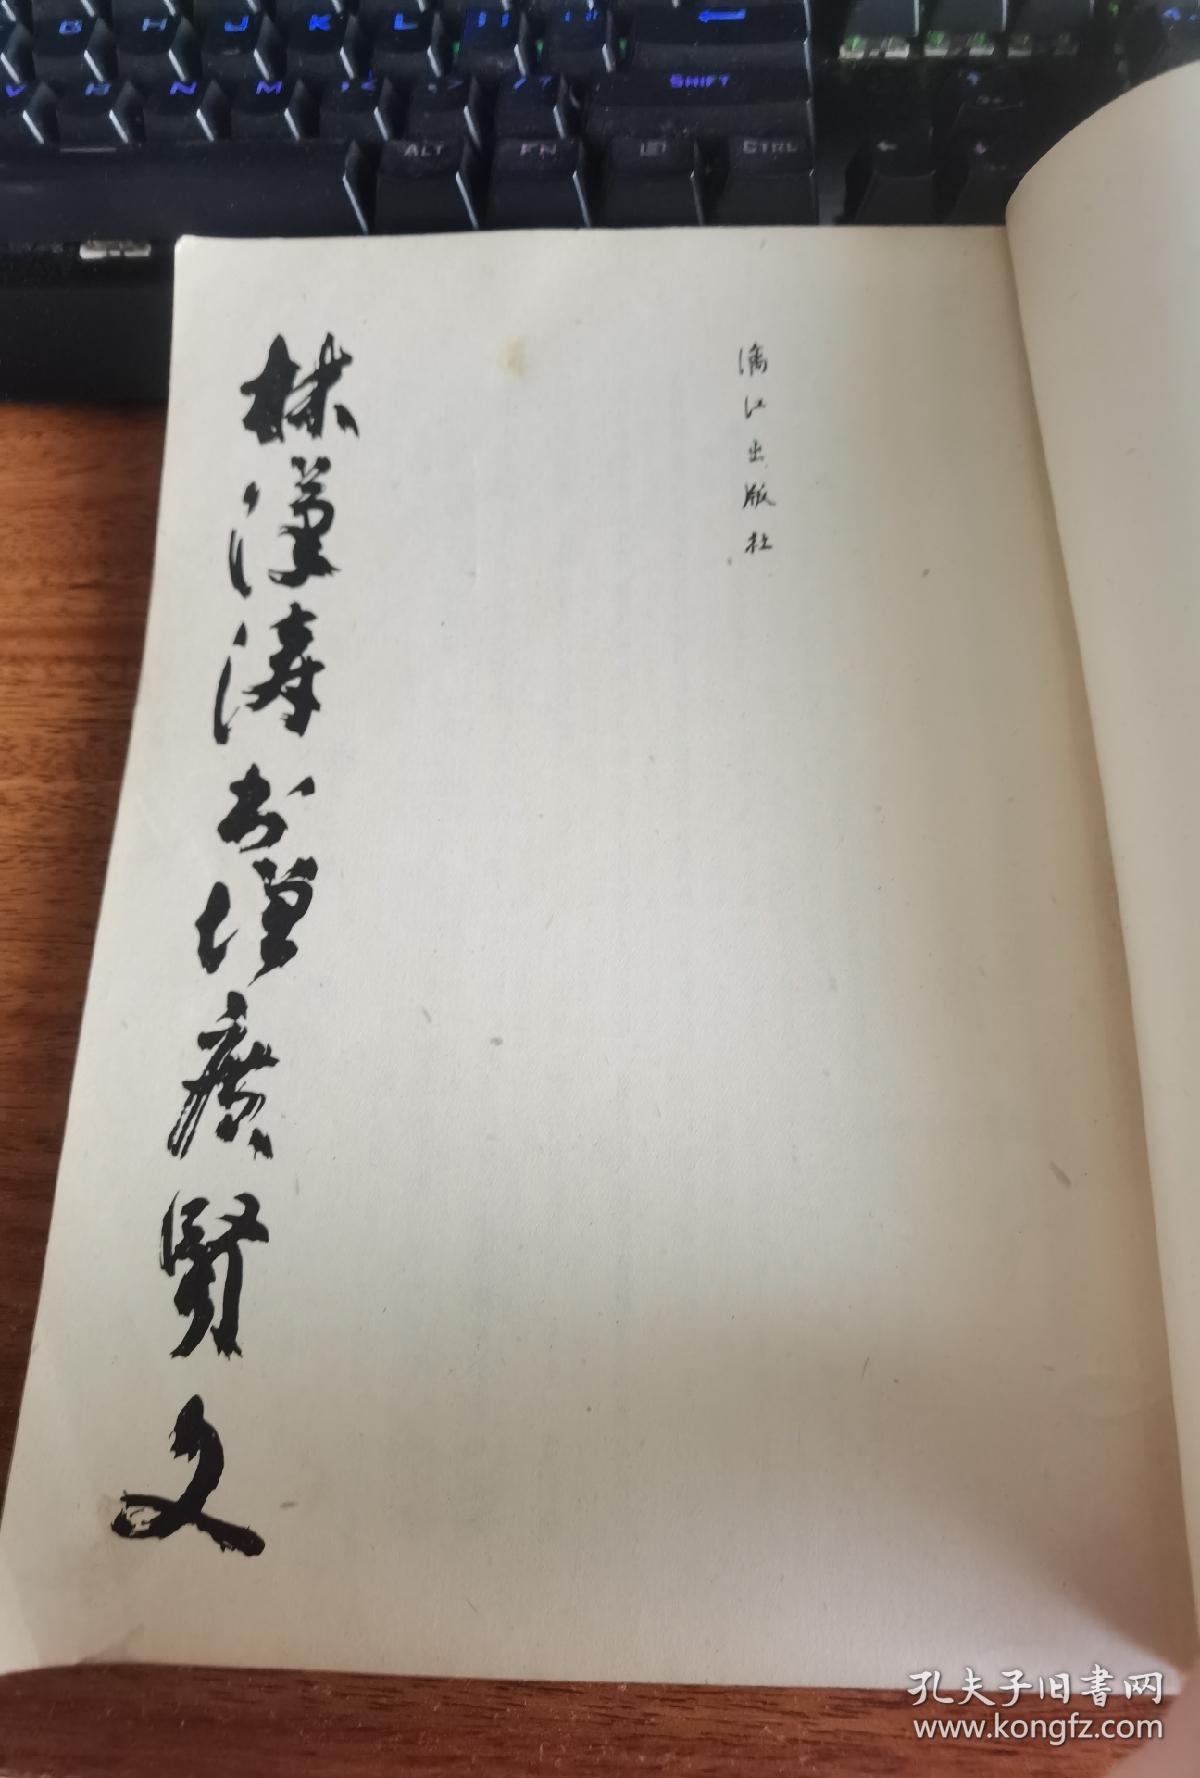 G H J K L
V B N M < > / ? SHIFT
ALT FN CTRL
漓江出版社
林漢濤书增廣賢文
孔夫子旧書网
www.kongfz.com